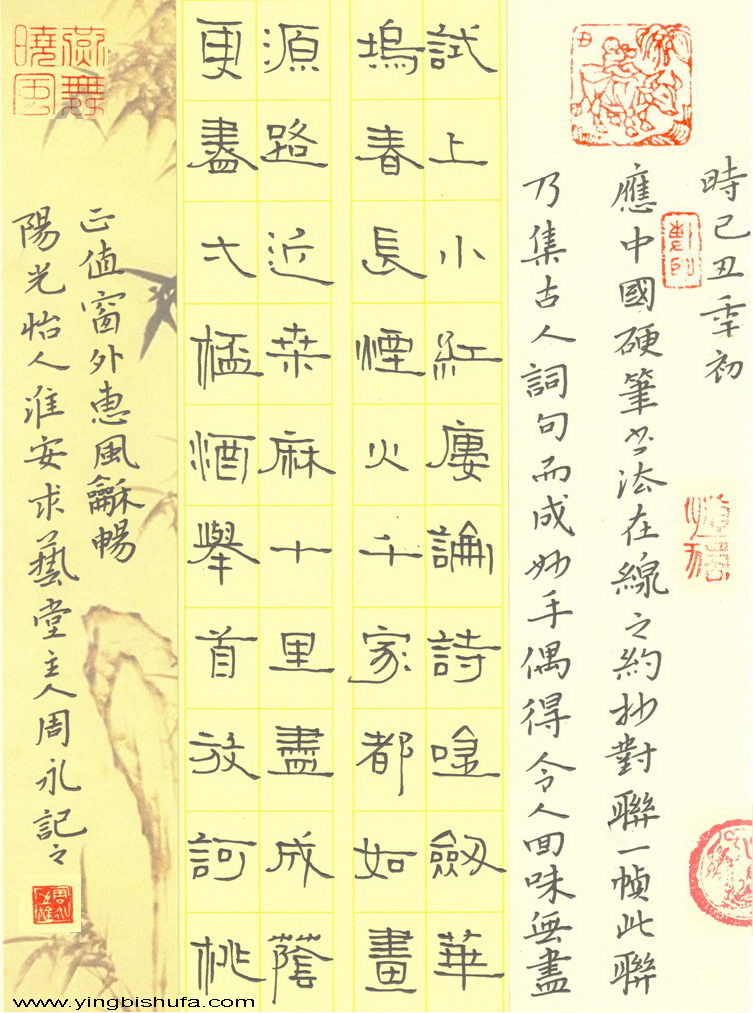 時己丑年初
應中國硬筆书法在線之約抄對聯一幀此聯
乃集古人詞句而成妙手偶得令人回味無盡
試上小紅廔論詩唫劔華
塢春長煙火千家都如畫
更盡弌桮酒舉首放訶桃
源路近桒麻十里盡成蔭
正值窗外惠風龢暢
陽光怡人淮安求藝堂主人周永記之
www.yingbishufa.com